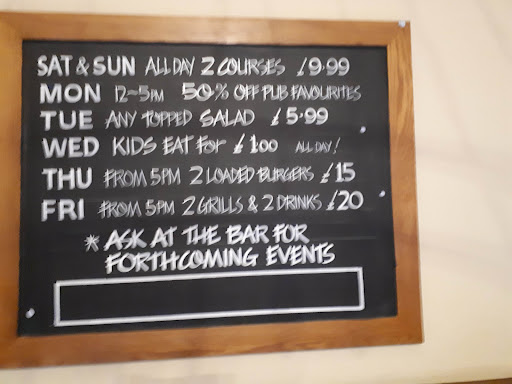 SAT & SUN ALL DAY 2 COURSES £9.99
MON 12~5PM 50% OFF PUB FAVOURITES
TUE ANY TOPPED SALAD £5.99
WED KIDS EAT FOR £1.00 ALL DAY!
THU FROM 5PM 2 LOADED BURGERS £15
FRI FROM 5PM 2 GRILLS & 2 DRINKS £20
* ASK AT THE BAR FOR
FORTHCOMING EVENTS